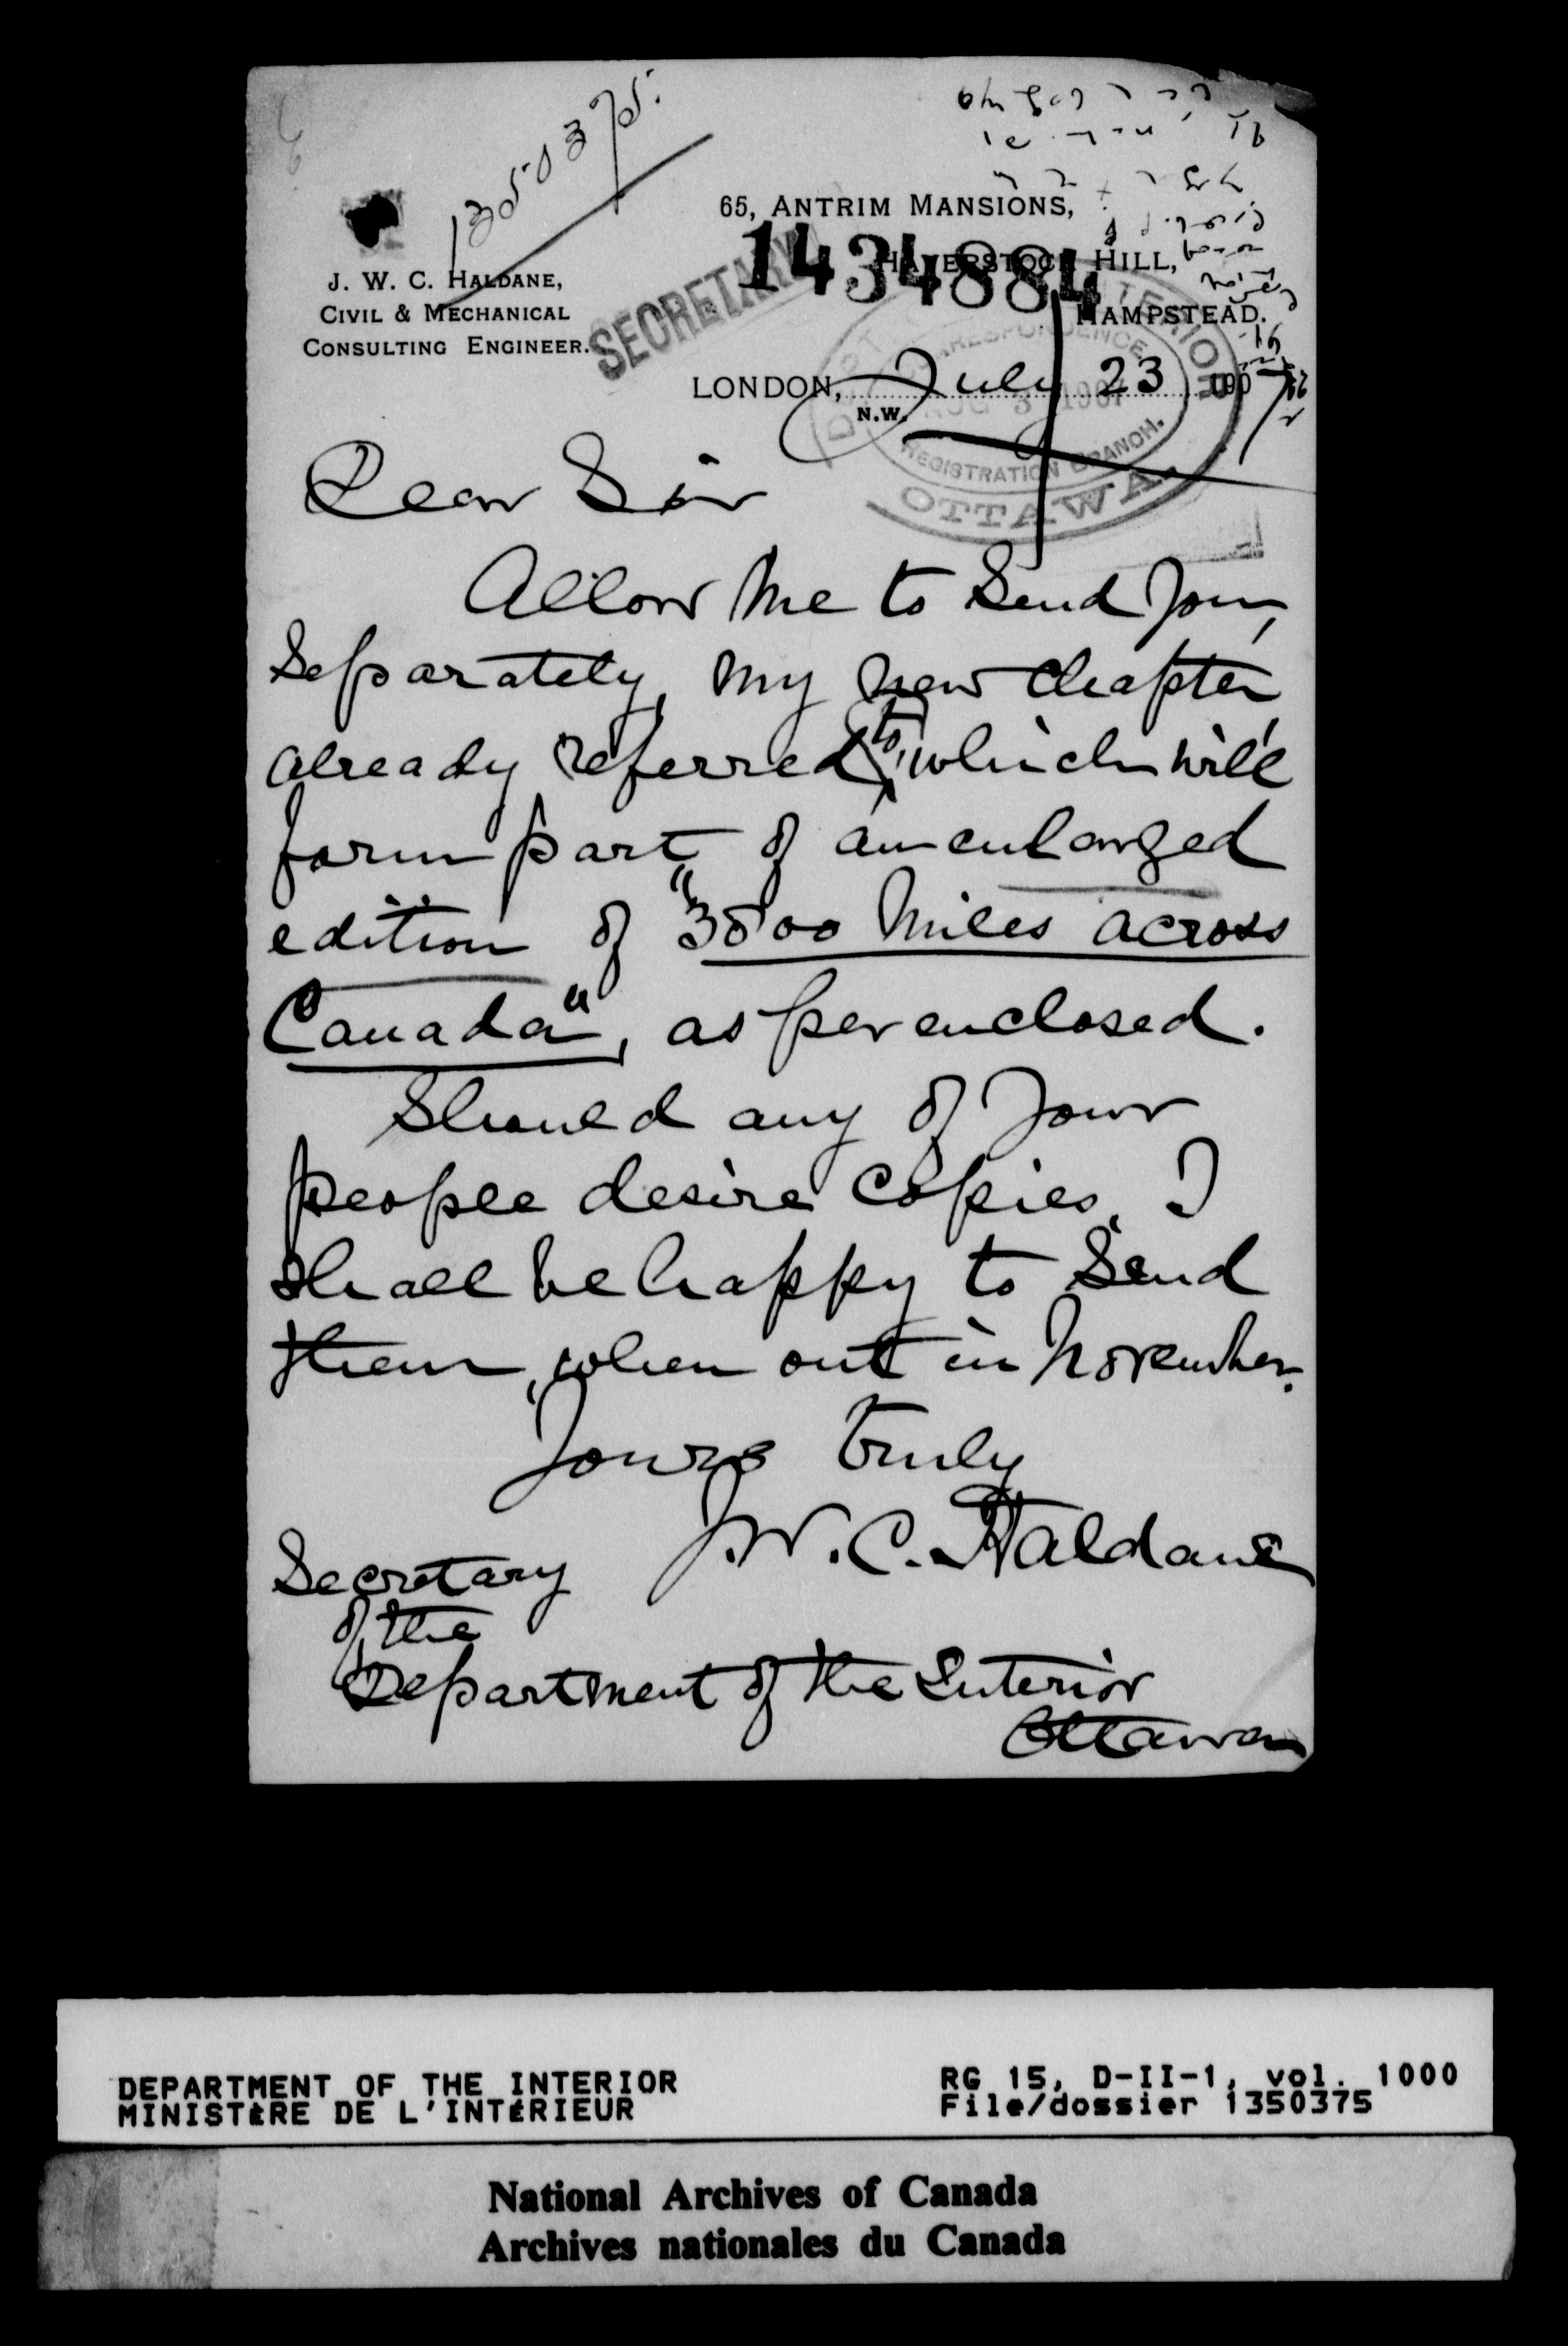 1350375.
65, ANTRIM MANSIONS,
1434884
HAVERSTOCK HILL,
HAMPSTEAD.
J. W. C. HALDANE,
CIVIL & MECHANICAL
CONSULTING ENGINEER.
SECRETARY
LONDON, July 23 1907
N.W.
DEPT INTERIOR
CORRESPONDENCE
AUG 3 1907
REGISTRATION BRANCH.
OTTAWA
Dear Sir
Allow me to send you,
separately, my new chapter
already referred to, which will
form part of an enlarged
edition of "3800 Miles across
Canada", as per enclosed.
Should any of your
people desire copies, I
shall be happy to send
them, when out in November.
Yours truly
J. W. C. Haldane
Secretary
of the
Department of the Interior
Ottawa
DEPARTMENT OF THE INTERIOR
MINISTÈRE DE L'INTÉRIEUR
RG 15, D-II-1, vol. 1000
File/dossier 1350375
National Archives of Canada
Archives nationales du Canada